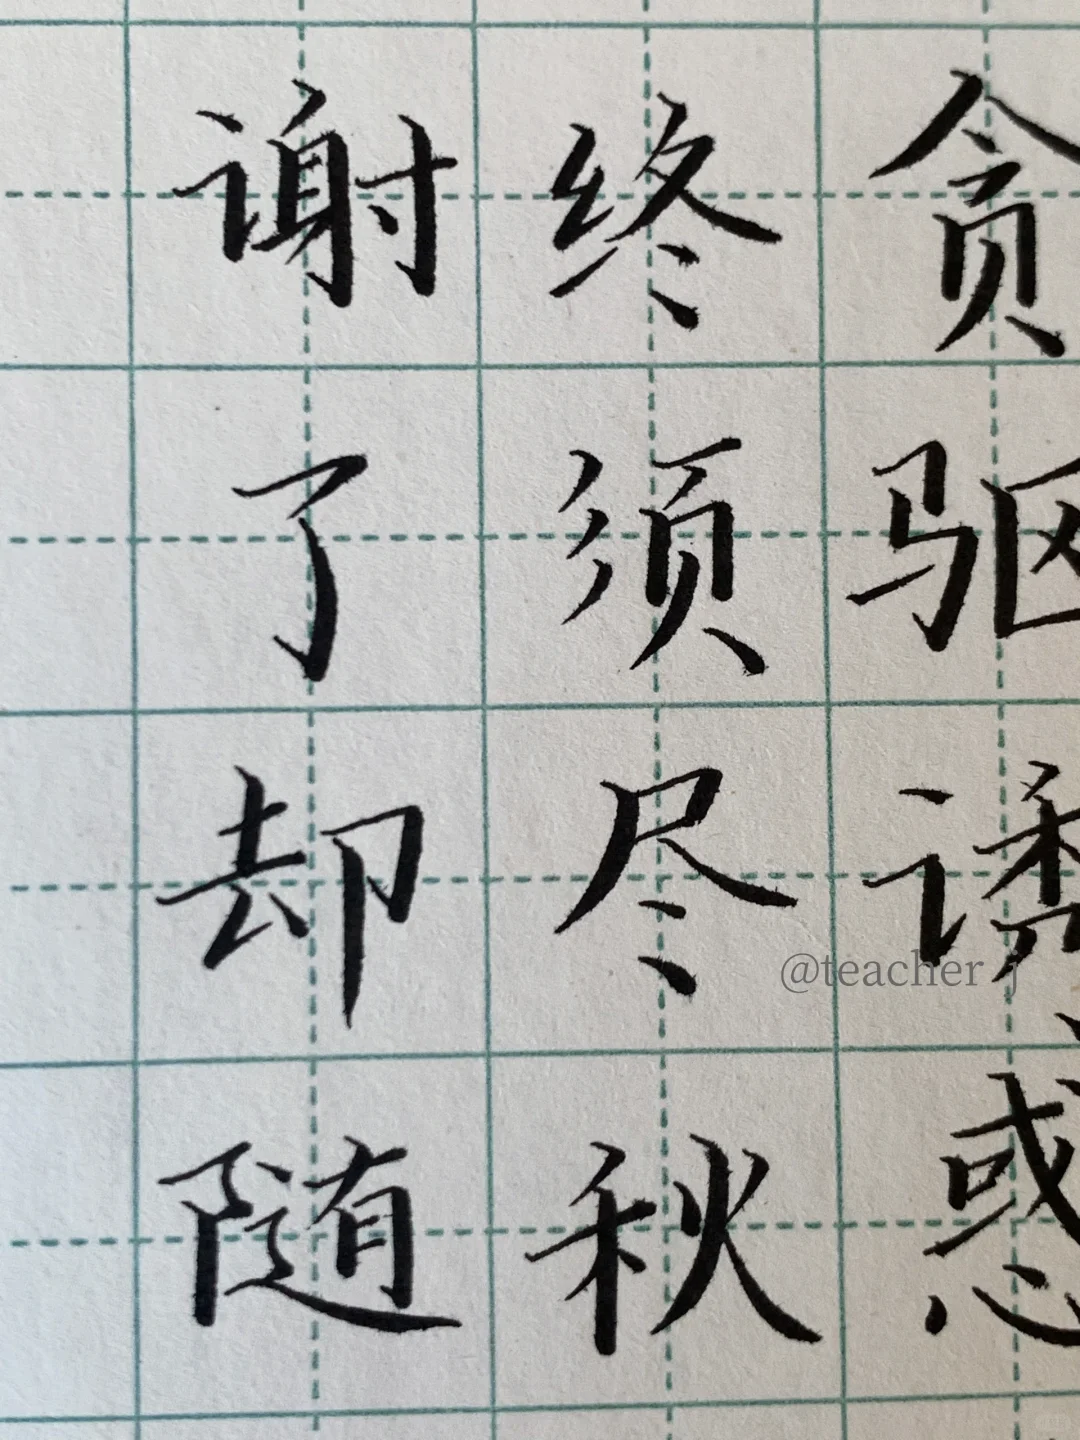 贪驱诱惑
终须尽秋
谢了却随
@teacher j